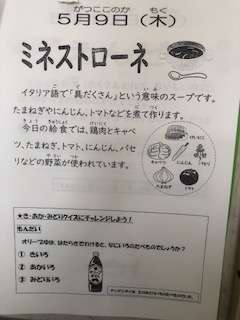 がつここのか もく
5月9日（木）
ミネストローネ
イタリア語で「具だくさん」という意味のスープです。
たまねぎやにんじん、トマトなどを煮て作ります。
今日の給食では、鶏肉とキャベ
ツ、たまねぎ、トマト、にんじん、パセ
リなどの野菜が使われています。
けいにく
キャベツ
にんじん
パセリ
たまねぎ
トマト
★き・あか・みどりクイズにチャレンジしよう！
もんだい
オリーブゆは、はたらきでわけると、なにいろのたべものでしょうか？
① きいろ
② あかいろ
③ みどりいろ